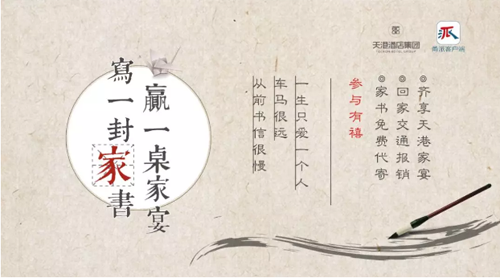 天港酒店集团
甬派客户端
寫一封家書
贏一桌家宴
从前书信很慢
车马很远
一生只爱一个人
参与有禧
◎家书免费代寄
◎回家交通报销
◎齐享天港家宴